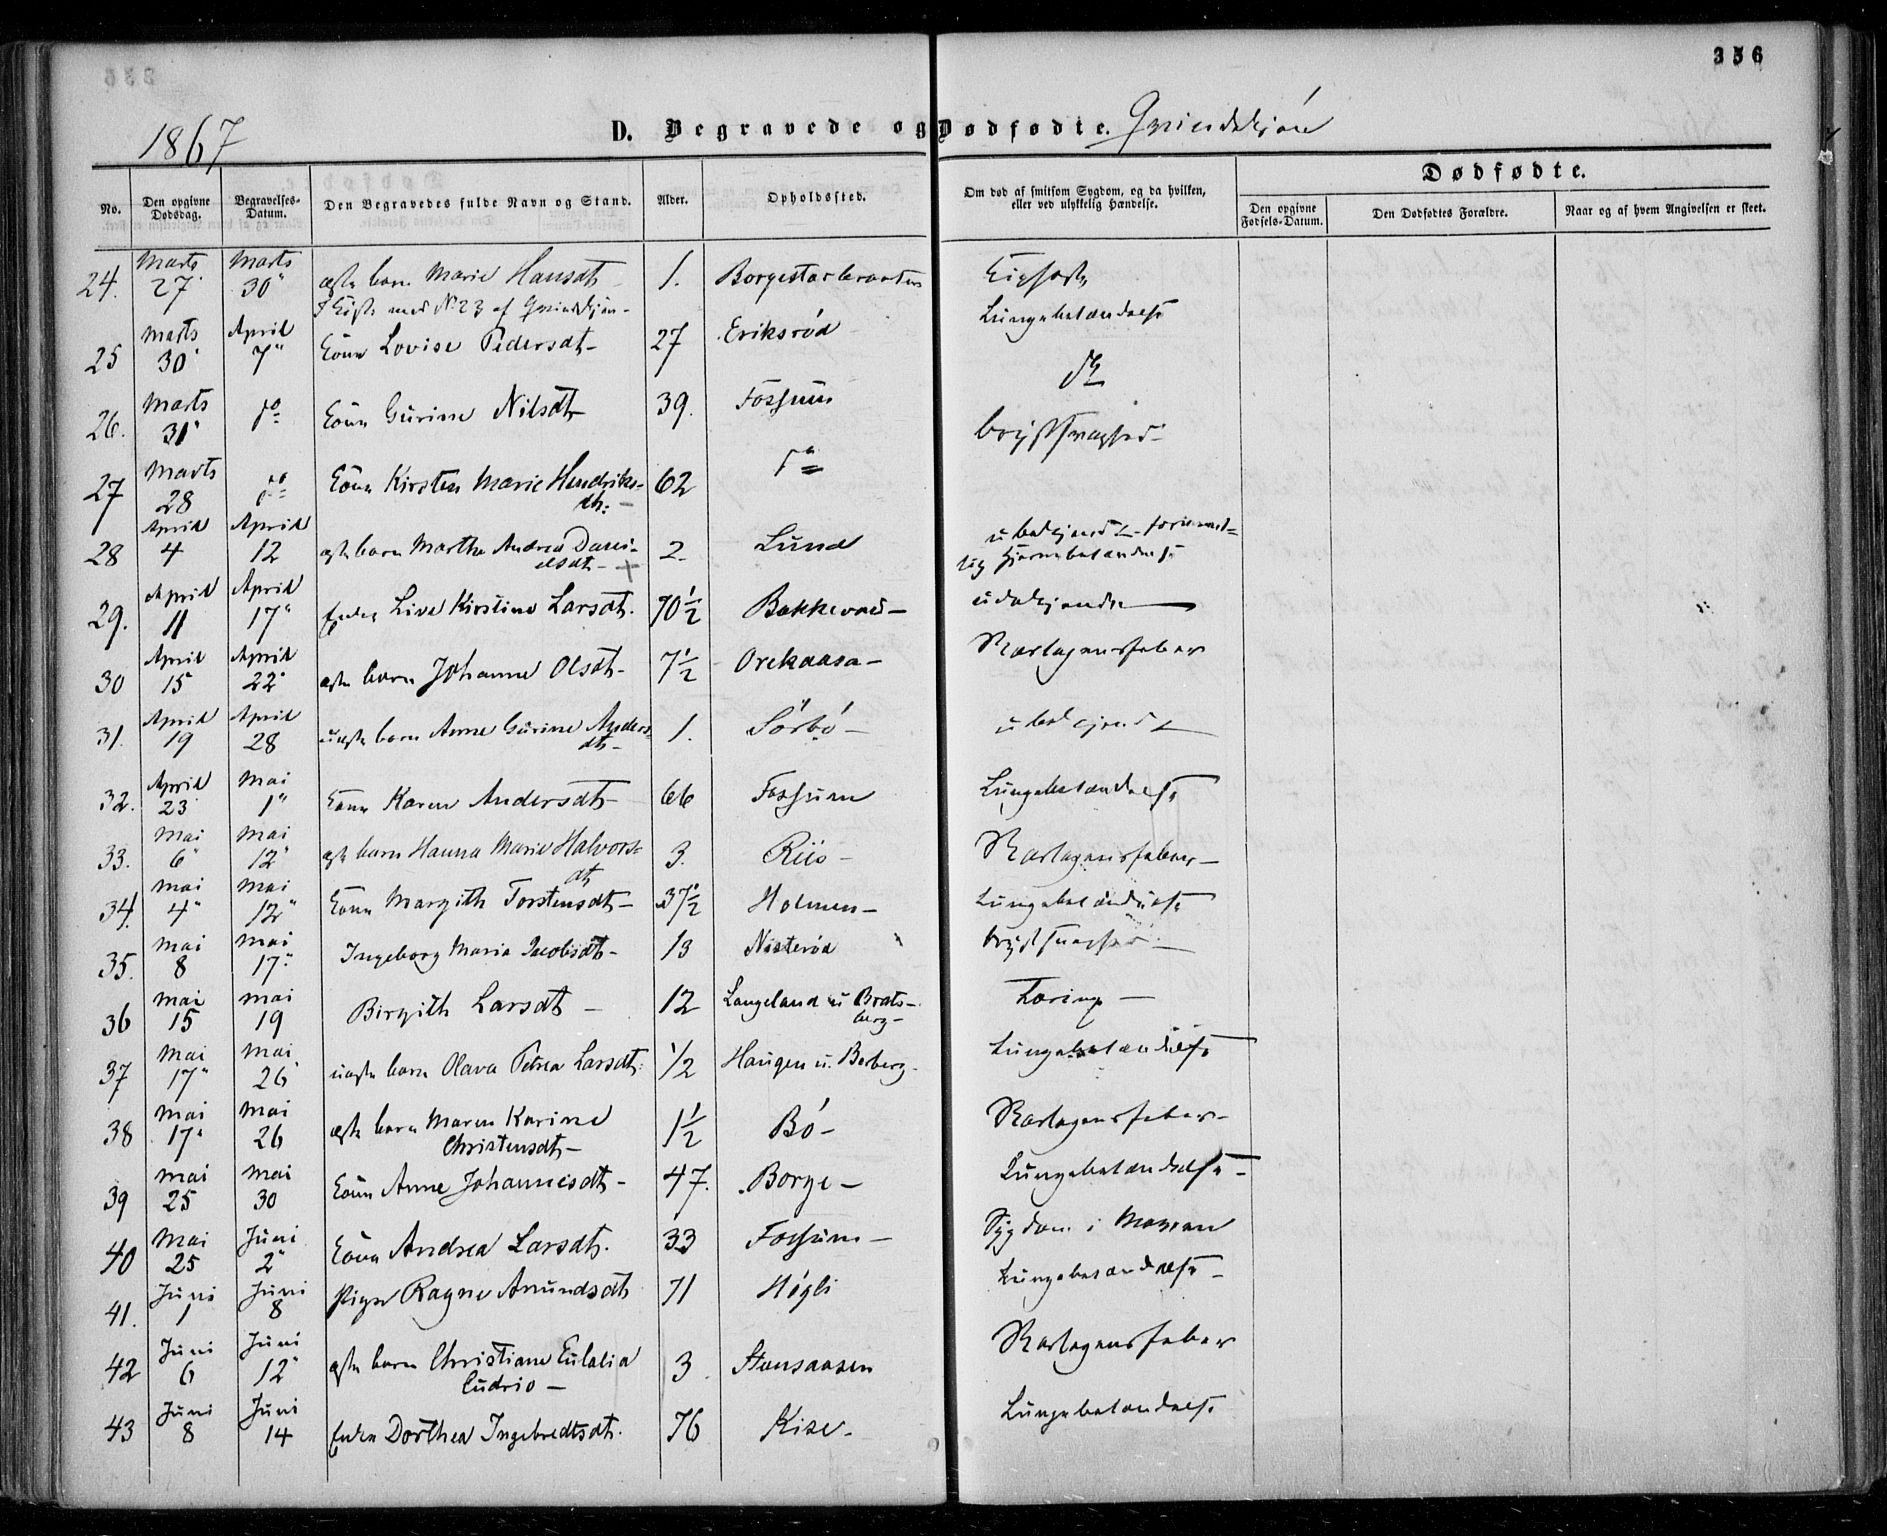 356
1867
D. Begravede og Dødfødte. Qvindekjøn
Dødfødte.
No. Den opgivne Dødsdag. Begravelses-Datum. Den Begravedes fulde Navn og Stand. Alder. Opholdssted. Om død af smitsom Sygdom, og da hvilken, eller ved ulykkelig Hændelse. Den opgivne Fødsels-Datum. Den Dødfødtes Forældre. Naar og af hvem Angivelsen er skeet.
24. Marts 27 Marts 30 ægte barn Marie Hansdt 1. Kighoste
I Kiste med No 23 af Qvindekjøn -
25 Marts 30 April 7 Kone Lovise Pedersdt - 27 Eriksrød Lungebetændelse
26. Marts 31 do Kone Gurine Nilsdt 39. Fossum do
27 Marts 28 do Kone Kirsten Marie Hendriks- 62 do Brystsvaghed -
dt: -
28 April 4 April 12 ægte barn Marthe Andrea Dani- 2. Lund ubekjendt - forment-
elsdt - + lig Hjernebetændelse
29. April 11 April 17 Enken Live Kirstine Larsdt. 70 1/2 Bakkevold - ubekjendt
30 April 15 April 22 ægte barn Johanne Olsdt - 7 1/2 Orekaasa - Skarlagensfeber
31. April 19 April 28 uægte barn Anne Gurine Anders- 1. Sørbø - ubekjendt
dt -
32. April 23 Mai 1 Kone Karen Andersdt - 66 Fossum Lungebetændelse
33. Mai 6 Mai 12 ægte barn Hanna Marie Halvors- 3. Riis - Skarlagensfeber -
dt
34. Mai 4 Mai 12 Kone Margith Torstensdt - 37 1/2 Holmen - Lungebetændelse
35. Mai 8 Mai 17 Ingeborg Maria Jacobsdt - 13 Nisterød Brystsvaghed -
36 Mai 15 Mai 19 Birgith Larsdt - 12 Langeland u Brats- Tæring -
berg -
37 Mai 17 Mai 26 uægte barn Olava Petrea Larsdt. 1/2 Haugen u. Borberg - Lungebetændelse
38 Mai 17 Mai 26 ægte barn Maren Karine 1 1/2 Bø - Skarlagensfeber -
Christensdt -
39 Mai 25 Mai 30 Kone Anne Johannesdt - 47. Borge - Lungebetændelse -
40 Mai 25 Juni 2 Kone Andrea Larsdt. 33 Fossum - Sygdom i Maven
41. Juni 1 Juni 8 Pige Ragne Amundsdt 71 Høgli Lungebetændelse -
42 Juni 6 Juni 12 ægte barn Christiane Eulalia 3. Skarlagensfeber
Cudrio -
43 Juni 8 Juni 14 Enken Dorthea Ingebredtsdt. 76 Kise - Lungebetændelse